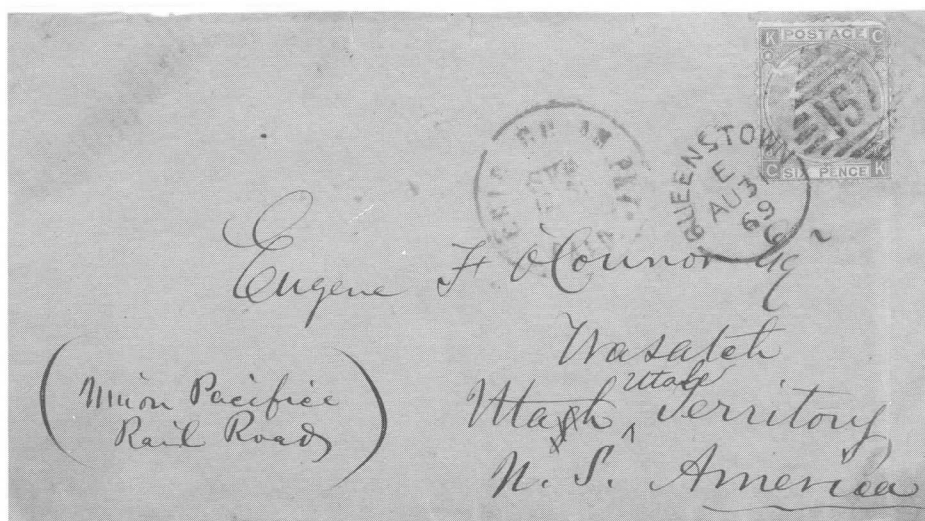 K POSTAGE C
157
C SIX PENCE K
QUEENSTOWN
E
AU 31
69
Eugene F O'Connor Esq
Wasatch
Utah
Utah Territory
U. S. America
(Union Pacific
Rail Road)